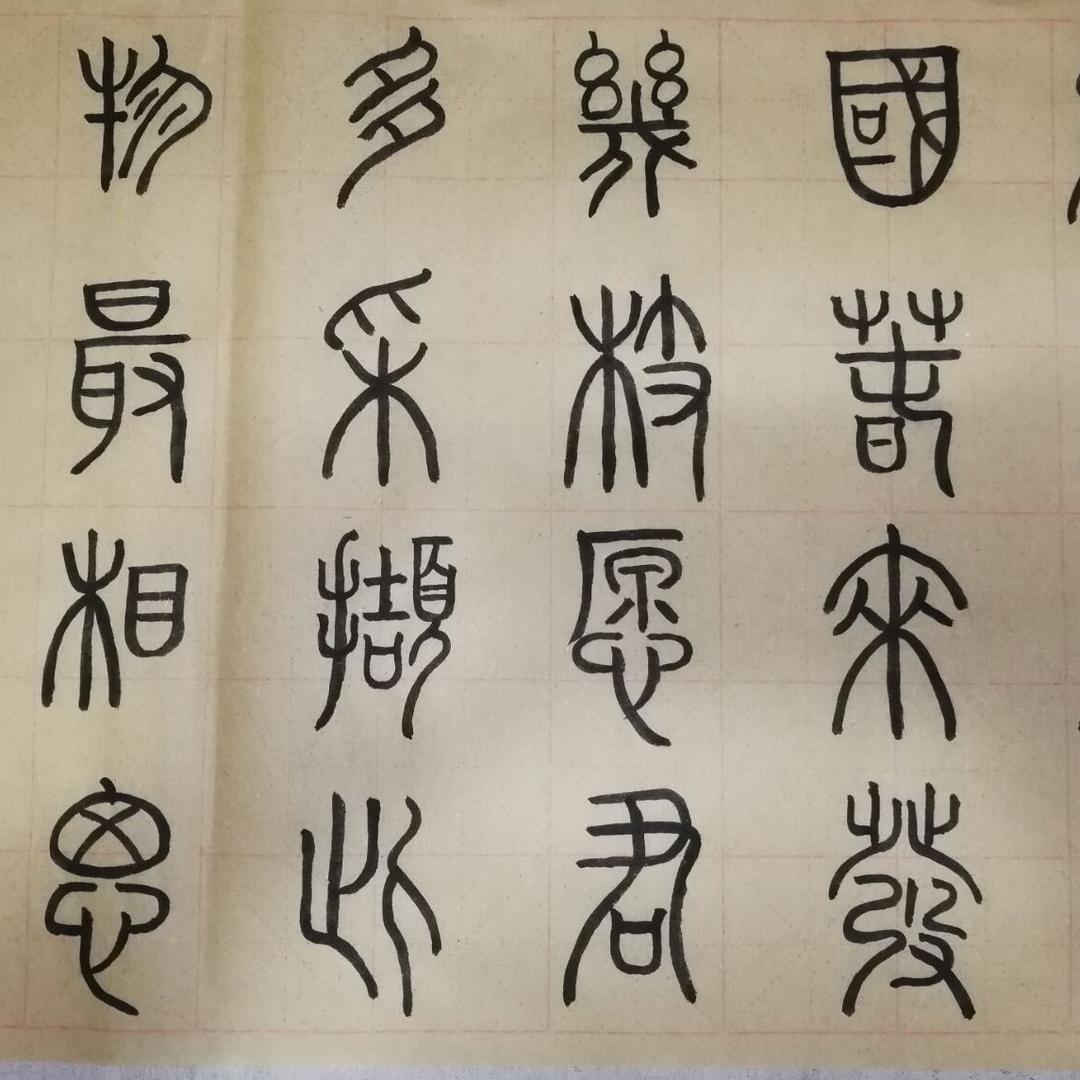 國春來發
幾枝愿君
多采擷此
物最相思